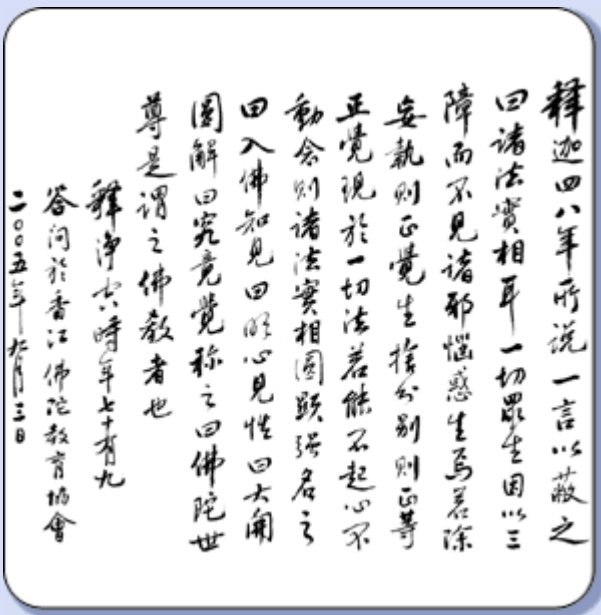 釋迦四八年所说一言以蔽之
曰諸法實相耳一切眾生因以三
障而不見諸邪惱惑生焉若除
妄執則正覺生捨分別則正等
正覺現於一切法若能不起心不
動念則諸法實相圓顯強名之
曰入佛知見曰明心見性曰大開
圓解曰究竟覺稱之曰佛陀世
尊是謂之佛教者也
釋淨空時年七十有九
答问於香江佛陀教育協會
二〇〇五年九月三日